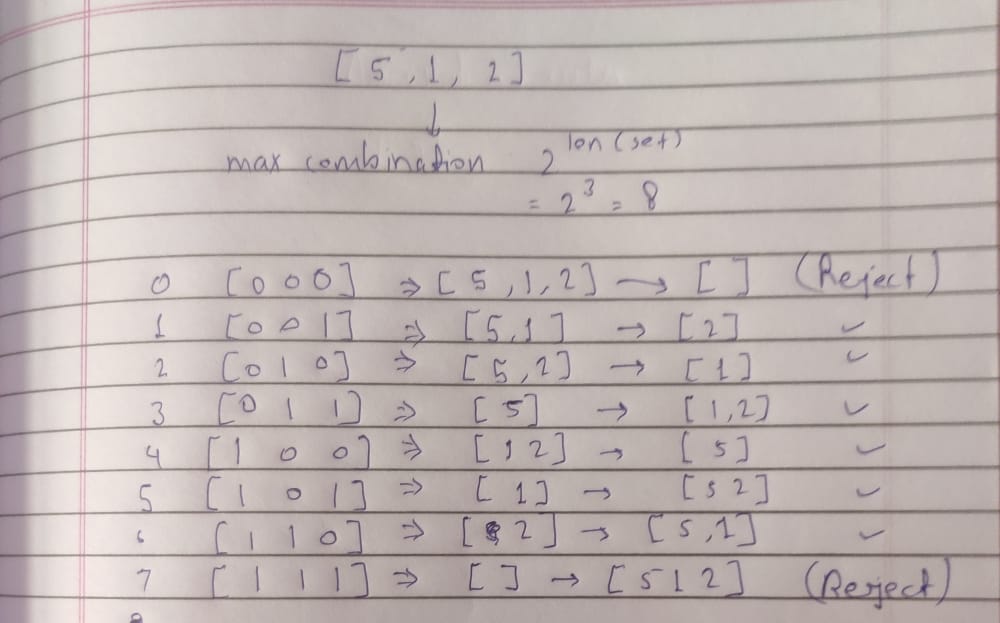 [ 5 , 1 , 2 ]
↓
max combination 2^len(set)
= 2^3 = 8
0 [0 0 0] ⇒ [ 5 , 1 , 2 ] → [ ] (Reject)
1 [0 0 1] ⇒ [5,1] → [2] ✓
2 [0 1 0] ⇒ [5,2] → [1] ✓
3 [0 1 1] ⇒ [5] → [1,2] ✓
4 [1 0 0] ⇒ [1 2] → [5] ✓
5 [1 0 1] ⇒ [1] → [5 2] ✓
6 [1 1 0] ⇒ [ 2] → [5,1] ✓
7 [1 1 1] ⇒ [ ] → [5 1 2] (Reject)